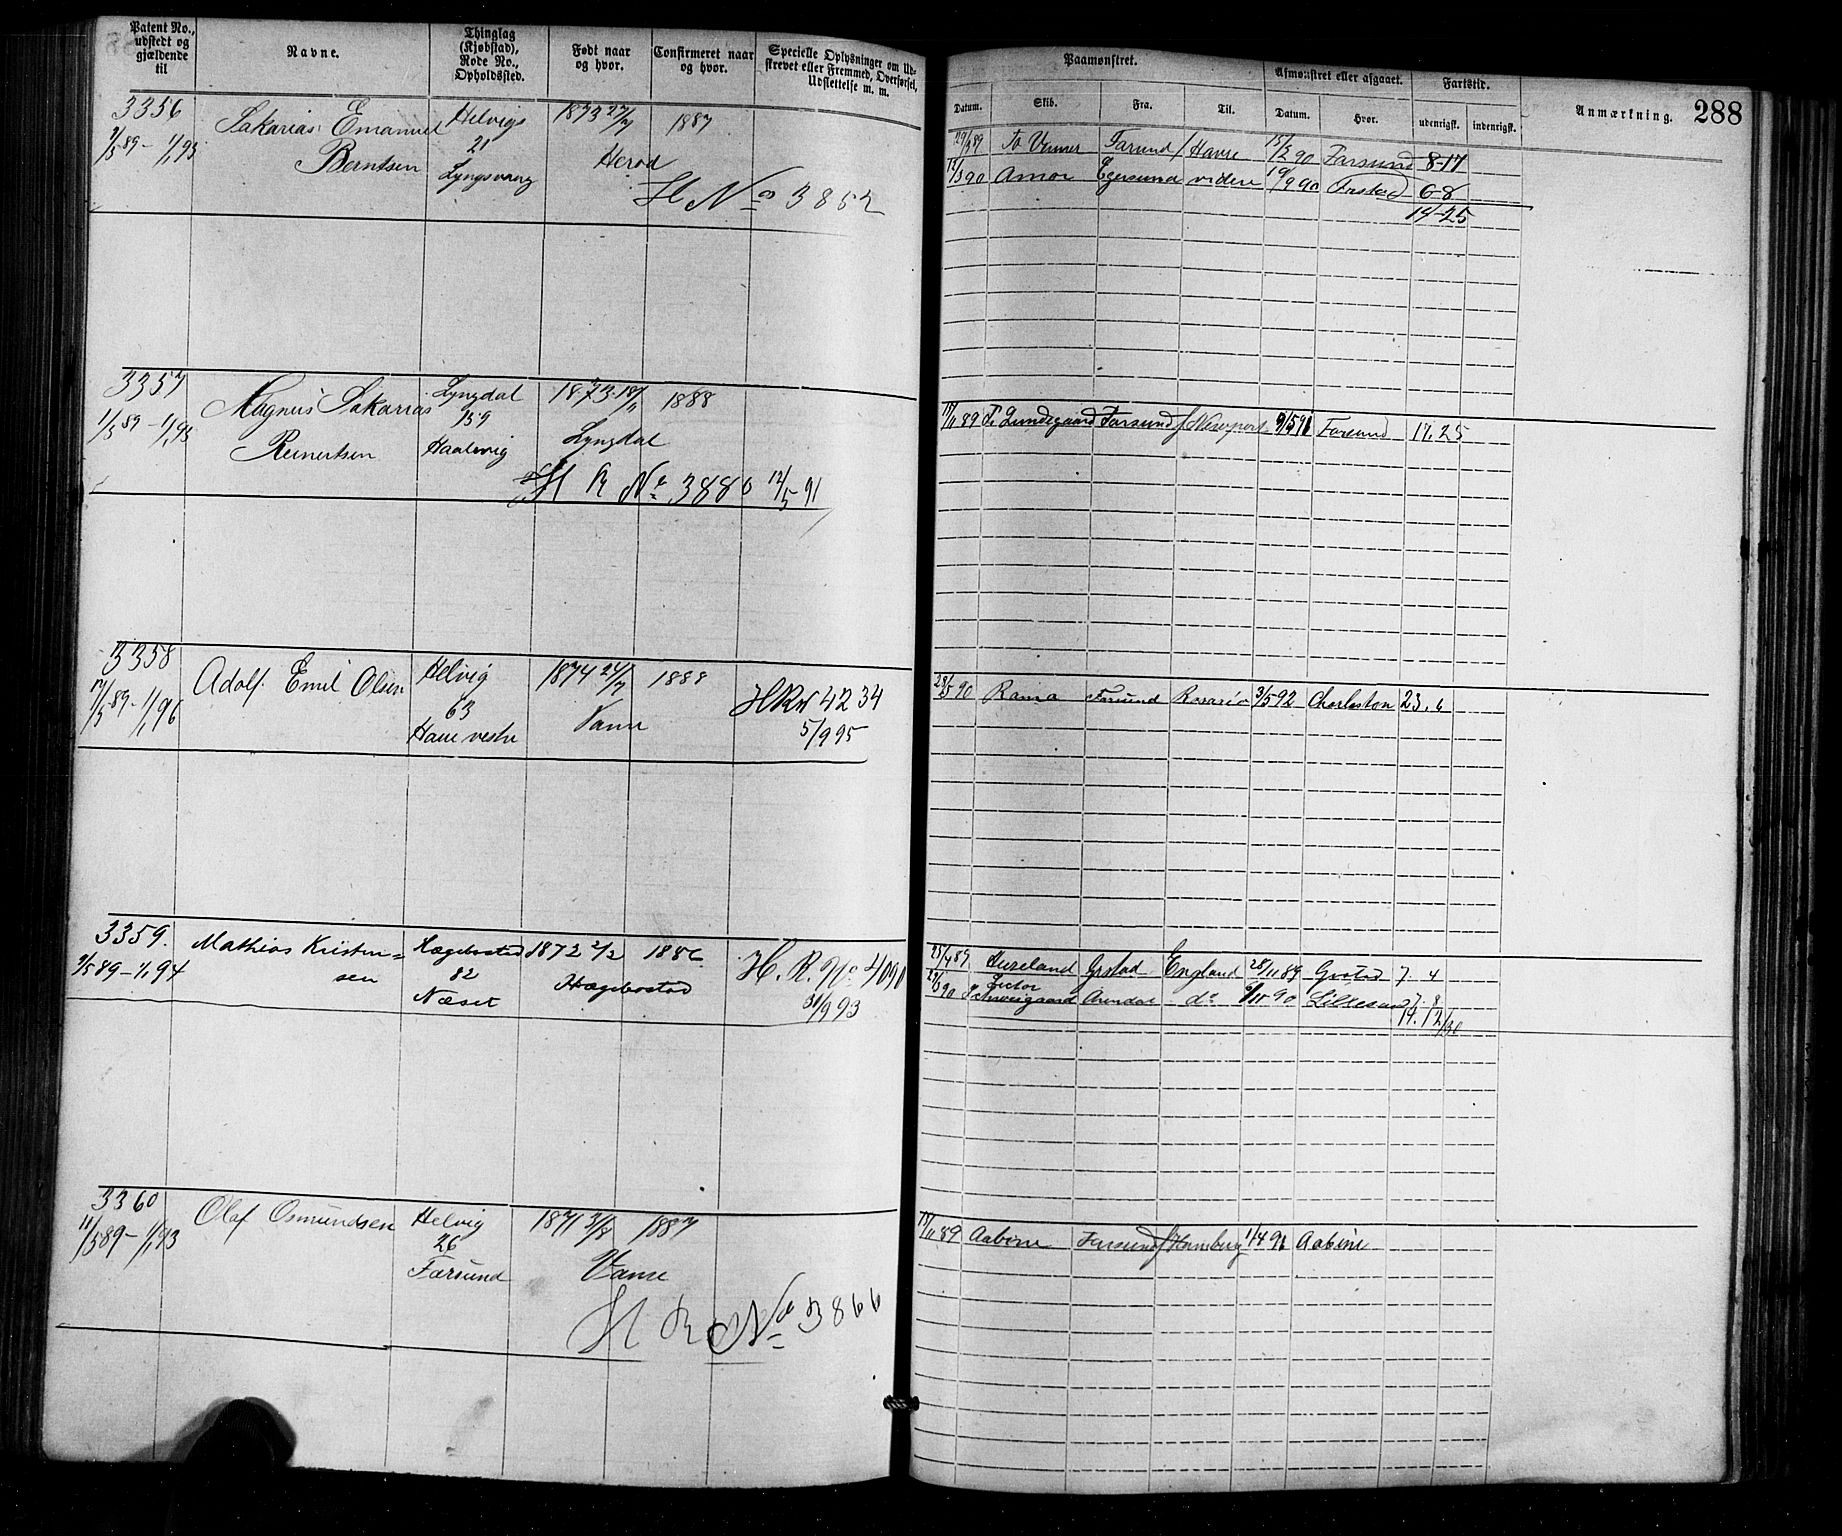 Patent No., udstedt og gjældende til
Navne.
Thinglag (Kjøbstad), Rode No., Opholdssted.
Født naar og hvor.
Confirmeret naar og hvor.
Specielle Oplysninger om Udskrevet eller Fremmed, Overførsel, Udslettelse m. m.
Paamønstret.
Afmønstret eller afgaaet.
Fartstid.
Anmærkning.
288
Datum.
Skib.
Fra.
Til.
Datum.
Hvor.
udenrigsk.
indenrigsk.
3356 Sakarias Emanuel Helvigs 1873 27/7 1887
1/5 89 - 1/1 93 Berntsen 21 Herod
Lyngsvaag
H No 3852
29/3 89 Farsund / Havre 15/2 90 Farsund 8-17
12/3 90 Amor Egersund videre 19/9 90 6-8
14-25
3357 Magnus Sakarias Lyngdal 1873 18/11 1888
1/5 89 - 1/1 93 Reinertsen 159 Lyngdal
Haalevig
H R No 3880 12/5 91
11/11 89 Lundegaard Farsund / Newport 9/5 91 Farsund 17.25
3358 Adolf Emil Olsen Helvig 1874 24/7 1888
17/5 89 - 1/1 96 63 Vanse
Haue vestre
HRN 4234
5/9 95
28/5 90 Rama Farsund Rosario 3/5 92 Charleston 23.6
3359. Mathias Kristen= Hægebostad 1872 2/2 1886
9/5 89 - 1/1 94 sen 82 Hægebostad
Næset
H. R. No 4090
31/9 93
25/4 89 Huseland Grstad England 28/11 89 Grstad 7. 4
Lector
29/3 90 Schweigaard Arendal do 6/11 90 Lillesand 7. 8
14. 12/30
3360 Olaf Osmundsen Helvig 1871 3/8 1887
11/5 89 - 1/1 93 26 Vanse
Farsund
H R No 3866
13/11 89 Aabine Farsund / Hamburg 1/4 91 Aabine